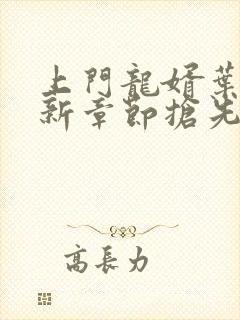 上門龍婿葉
新章節搶先
高長力